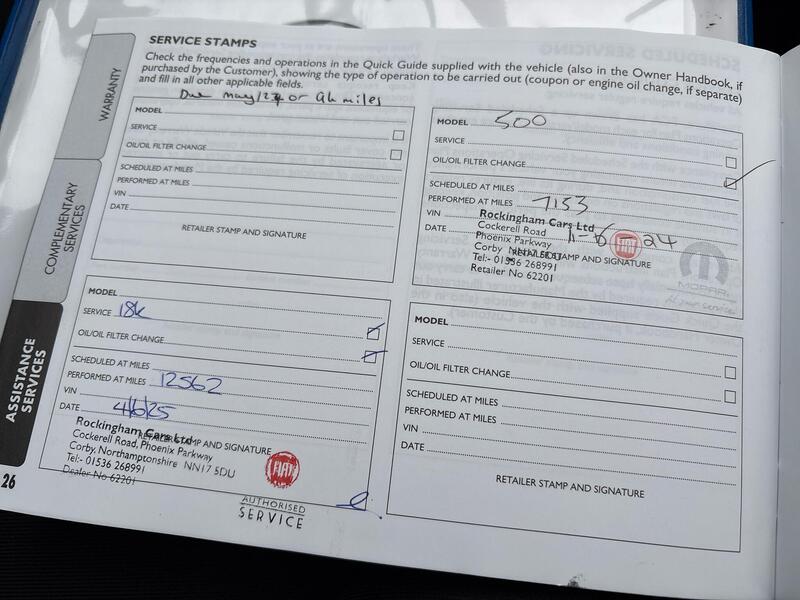 SERVICE STAMPS
Check the frequencies and operations in the Quick Guide supplied with the vehicle (also in the Owner Handbook, if
purchased by the Customer), showing the type of operation to be carried out (coupon or engine oil change, if separate)
and fill in all other applicable fields.
WARRANTY
COMPLEMENTARY
SERVICES
ASSISTANCE
SERVICES
26
Due may/24 or 9k miles
MODEL
SERVICE
OIL/OIL FILTER CHANGE
SCHEDULED AT MILES
PERFORMED AT MILES
VIN
DATE
RETAILER STAMP AND SIGNATURE
MODEL 500
SERVICE
OIL/OIL FILTER CHANGE
SCHEDULED AT MILES
PERFORMED AT MILES 7153
VIN
DATE 11-6-24
Rockingham Cars Ltd
Cockerell Road
Phoenix Parkway
Corby NN17 5DU
RETAILER STAMP AND SIGNATURE
Tel:- 01536 268991
Retailer No 62201
FIAT
MOPAR
MODEL
SERVICE 18k
OIL/OIL FILTER CHANGE
SCHEDULED AT MILES
PERFORMED AT MILES 12562
VIN
DATE 4/6/25
Rockingham Cars Ltd
RETAILER STAMP AND SIGNATURE
Cockerell Road, Phoenix Parkway
Corby, Northamptonshire NN17 5DU
Tel:- 01536 268991
Dealer No 62201
FIAT
AUTHORISED
SERVICE
MODEL
SERVICE
OIL/OIL FILTER CHANGE
SCHEDULED AT MILES
PERFORMED AT MILES
VIN
DATE
RETAILER STAMP AND SIGNATURE